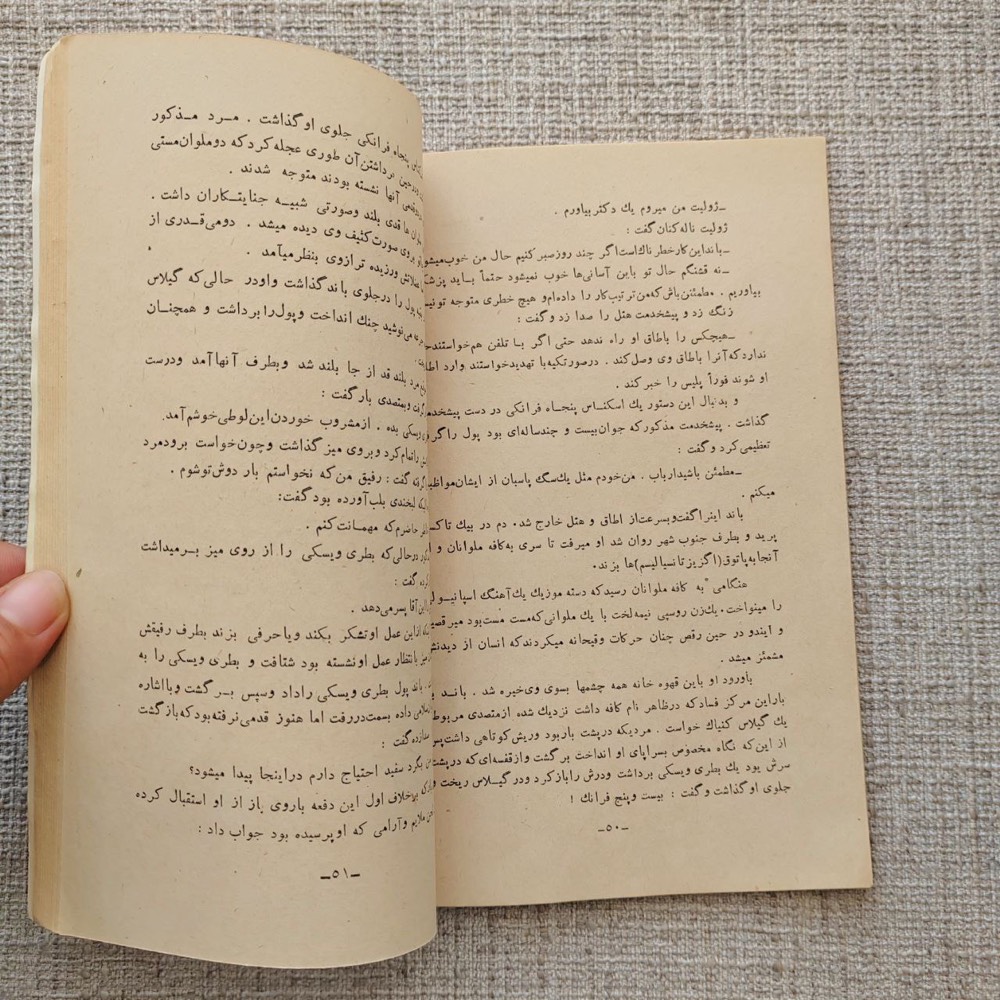 ـ ژولیت من میروم یك دکتر بیاورم .
ژولیت ناله کنان گفت :
ـ باند این کار خطر ناك است اگر چند روز صبر کنیم حال من خوب میشود
ـ نه قشنگم حال تو باین آسانی‌ها خوب نمیشود حتماً باید
بیاوریم . مطمئن باش که من ترتیب کار را داده‌ام و هیچ خطری متوجه تو
زنگ زد و پیشخدمت هتل را صدا زد و گفت :
ـ هیچکس را باطاق او راه ندهد حتی اگر با تلفن هم خواستند
ندارد که آنرا باطاق وی وصل کند . درصورتکیه با تهدید خواستند وارد
او شوند فوراً پلیس را خبر کند .
و بدنبال این دستور یك اسکناس پنجاه فرانکی در دست پیشخدمت
گذاشت . پیشخدمت مذکور که جوان بیست و چند ساله‌ای بود پول را گرفت
تعظیمی کرد و گفت :
ـ مطمئن باشید ارباب . من خودم مثل یك سگ پاسبان از ایشان
میکنم .
باند اینرا گفت و بسرعت از اطاق و هتل خارج شد . دم در بیك
پرید و بطرف جنوب شهر روان شد او میرفت تا سری به کافه ملوانان و
آنجا به پاتوق (اگزیزتانسیالیسم)ها بزند .
هنگامی به کافه ملوانان رسید که دسته موزیك یك آهنگ
را مینواخت . یك زن روسپی نیمه لخت با یك ملوانی که مست مست بود
و ایندو در حین رقص چنان حرکات وقیحانه میکردند که انسان از دیدنش
مشمئز میشد .
باورود او باین قهوه خانه همه چشمها بسوی وی خیره شد . باند
باراین مرکز فساد که در ظاهر نام کافه داشت نزدیك شده از متصدی مربوط
یك گیلاس کنیاك خواست . مردیکه درپشت بار بود وریش کوتاهی داشت پس
از این که نگاه مخصوص بسراپای او انداخت بر گشت و از قفسه‌ای که درپشت
سرش بود یك بطری ویسکی برداشت ودرش را باز کرد ودر گیلاس ریخت و
جلوی او گذاشت و گفت : بیست و پنج فرانك !
ـ٥٠ـ
پنجاه فرانکی جلوی او گذاشت . مرد مذکور
برداشتن آن طوری عجله کرد که دو ملوان مستی
آنها نشسته بودند متوجه شدند .
قدی بلند وصورتی شبیه جنایتکاران داشت .
بروی صورت کثیف وی دیده میشد . دومی قدری از
ورزیده تر ازوی بنظر میآمد .
پول را درجلوی باند گذاشت واودر حالی که گیلاس
می‌نوشید چنك انداخت وپول را برداشت و همچنان
مرد بلند قد از جا بلند شد وبطرف آنها آمد ودرست
وبمتصدی بار گفت :
ویسکی بده . ازمشروب خوردن این لوطی خوشم آمد
راتمام کرد وبروی میز گذاشت وچون خواست برودمرد
گفت : رفیق من که نخواستم بار دوش توشوم .
لبخندی بلب آورده بود گفت:
حاضرم که مهمانت کنم .
درحالی که بطری ویسکی را از روی میز برمیداشت
گفت :
این آقا پسر می‌دهد .
ازاین عمل اوتشکر بکند ویاحرفی بزند بطرف رفیقش
بانتظار عمل اونشسته بود شتافت و بطری ویسکی را به
باند پول بطری ویسکی راداد وسپس بر گشت وبااشاره
داده بسمت در رفت اما هنوز قدمی نرفته بود که باز گشت
گفت :
بگرد سفید احتیاج دارم دراینجا پیدا میشود؟
برخلاف اول این دفعه باروی باز از او استقبال کرده
ملایم وآرامی که اوپرسیده بود جواب داد :
ـ٥١ـ